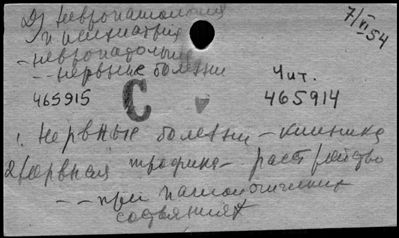 2) Невропатология
и психиатрия
7/VI 54
- невропатология
-- нервные болезни
Чит.
465915
С
465914
1. Нервные болезни - клиника
2. Нервная трофика - расстройство
-- при патологических
состояниях